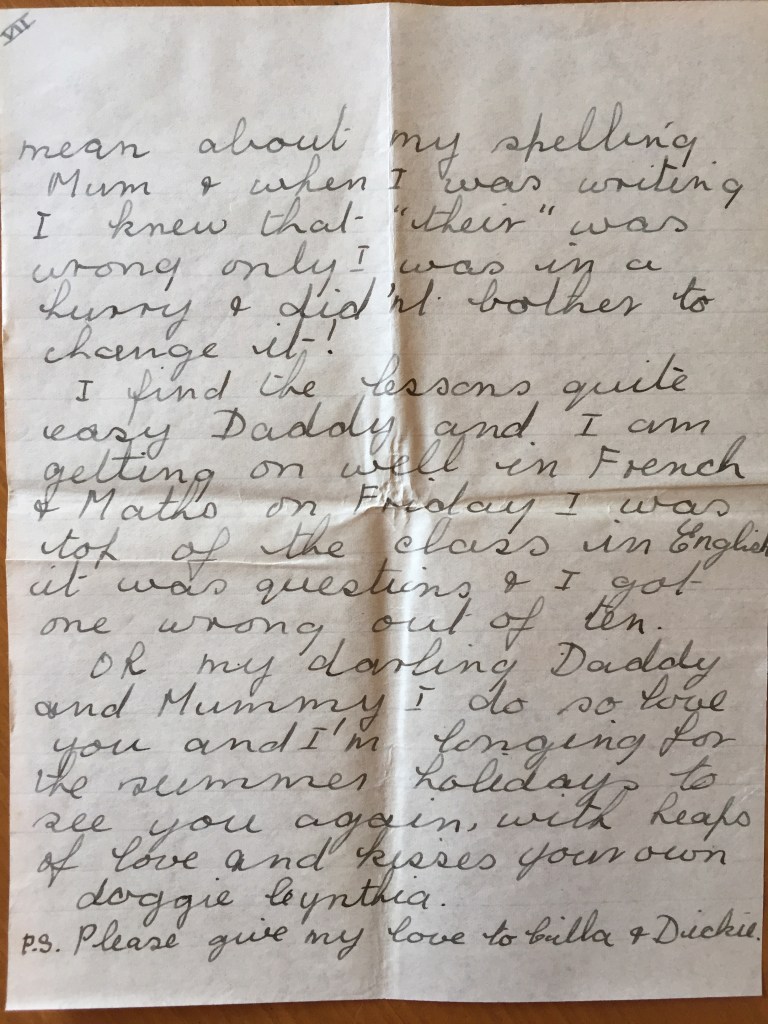 VII
mean about my spelling
Mum & when I was writing
I knew that "their" was
wrong only I was in a
hurry & did'nt bother to
change it!
I find the lessons quite
easy Daddy and I am
getting on well in French
& Maths on Friday I was
top of the class in English
it was questions & I got
one wrong out of ten.
OR my darling Daddy
and Mummy I do so love
you and I'm longing for
the summer holidays to
see you again, with heaps
of love and kisses your own
doggie Cynthia.
P.S. Please give my love to Cilla & Dickie.